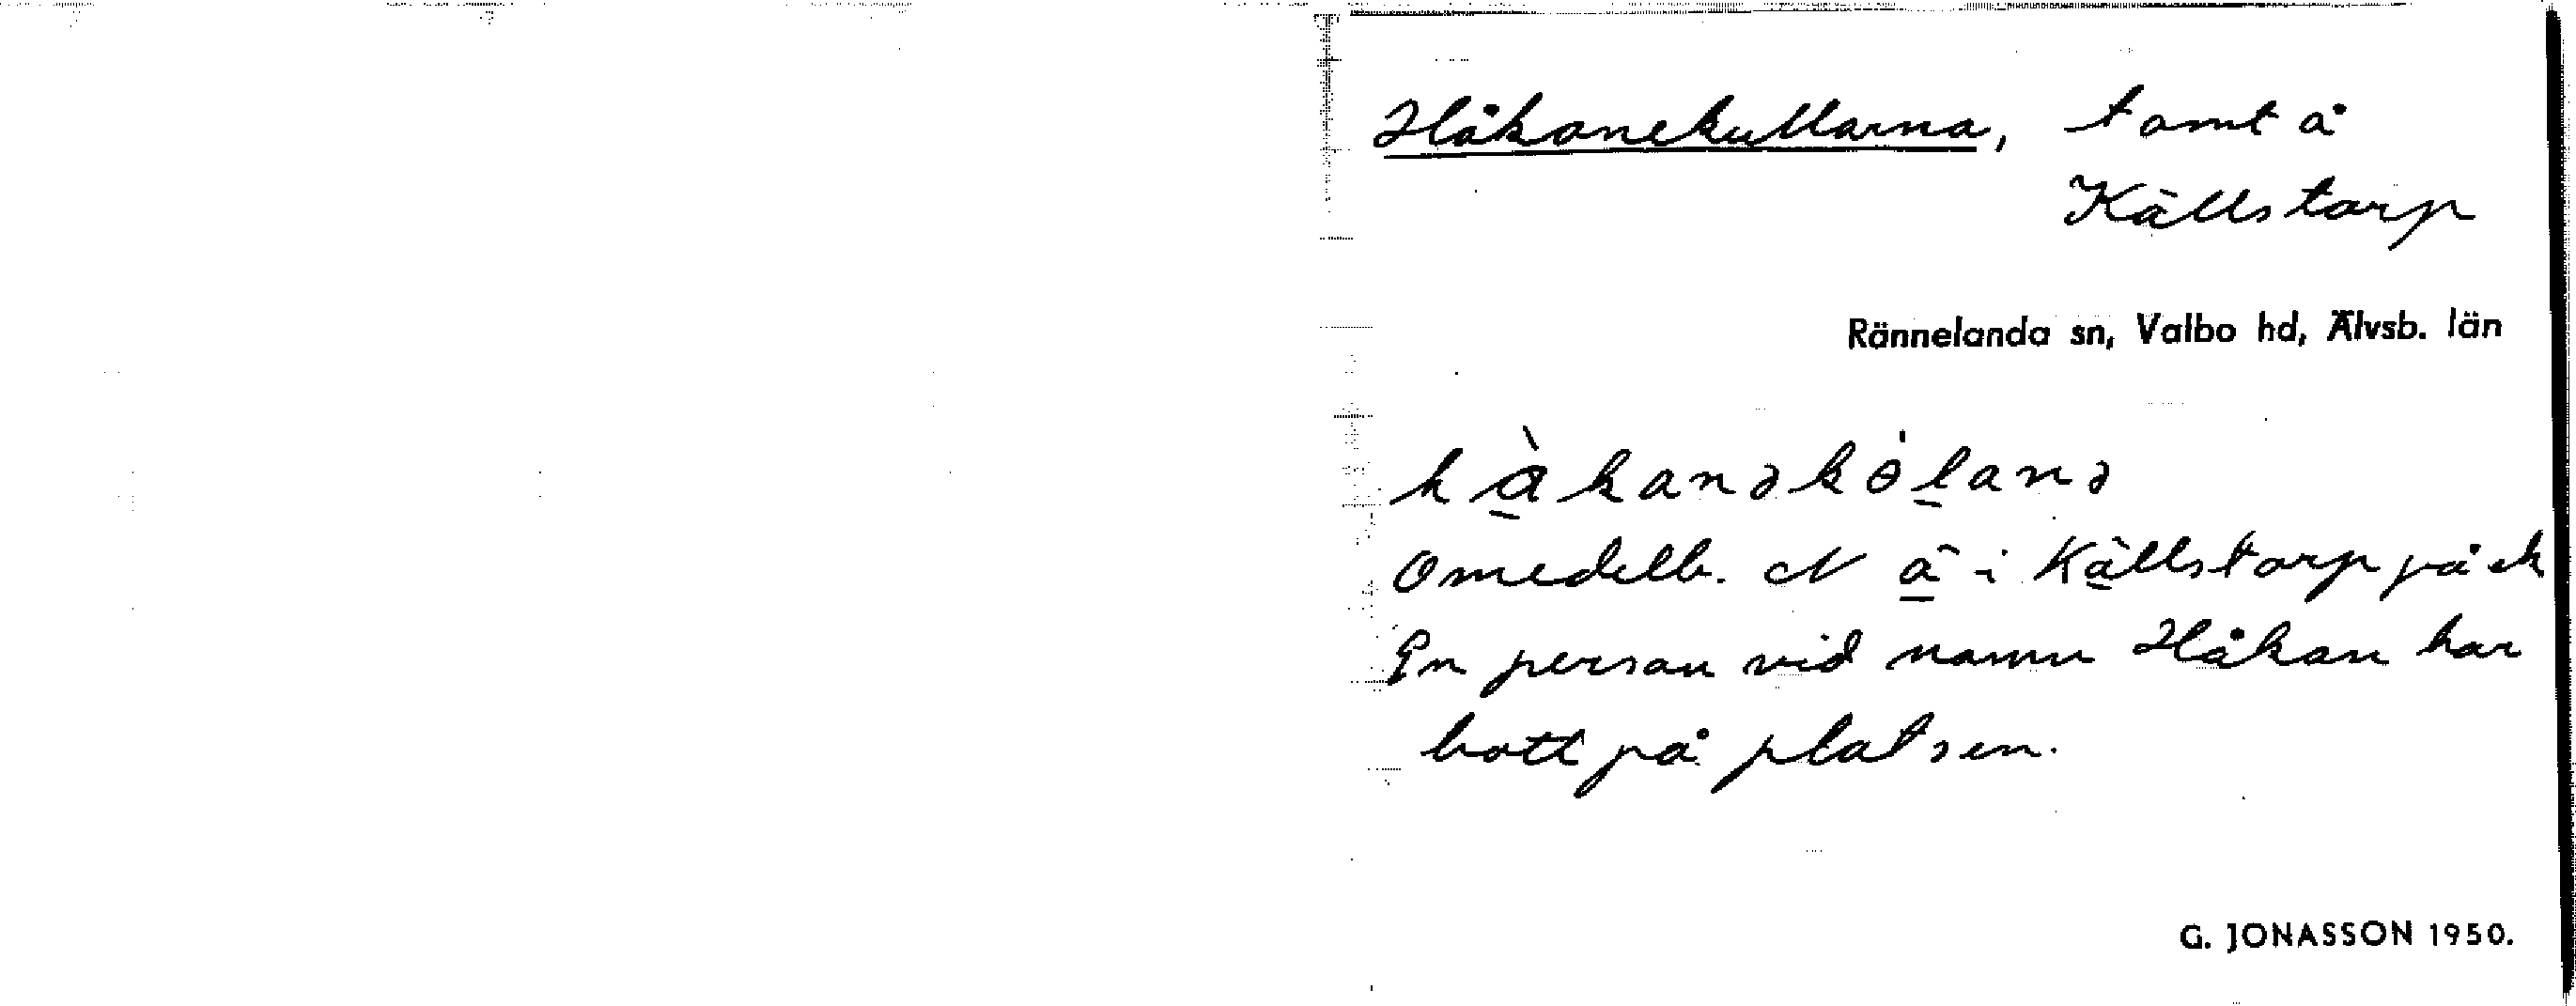 Håkanekullarna, tomt å
Källstarp
Rännelanda sn, Valbo hd, Älvsb. län
Omedelb. N å i Källstarp på ek
En person vid namn Håkan har
bott på platsen.
G. JONASSON 1950.